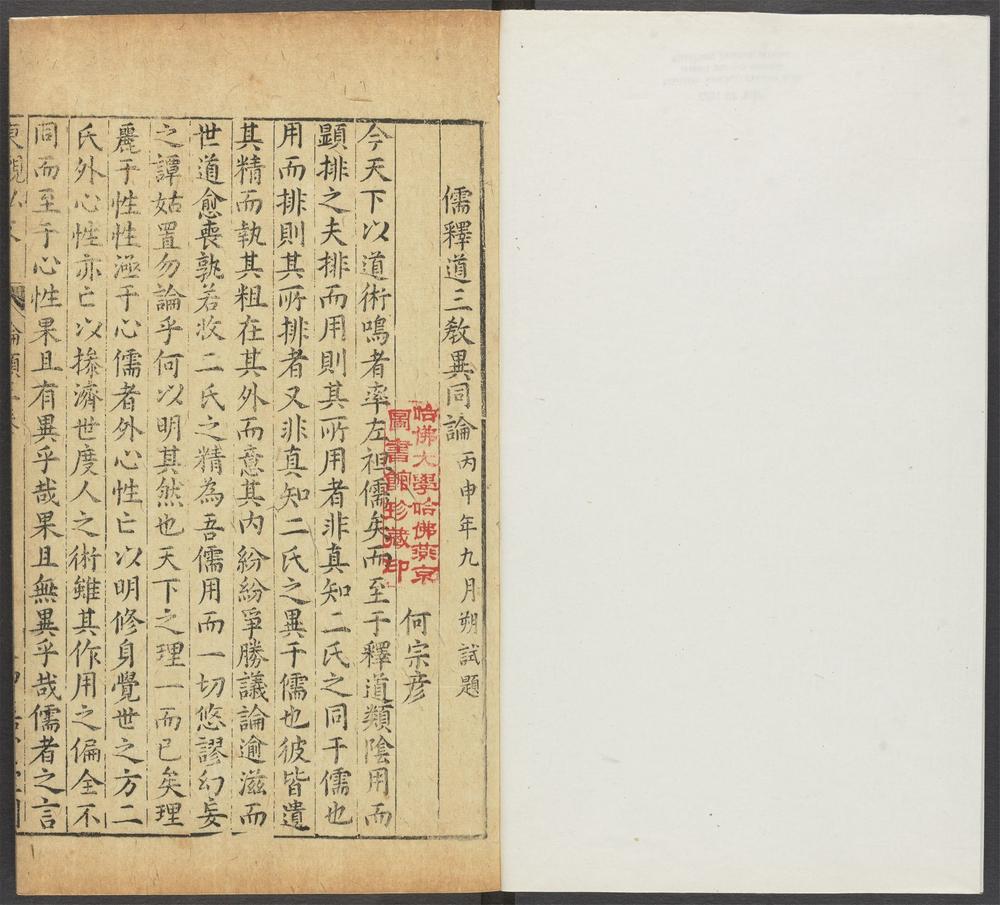 儒釋道三敎異同論丙申年九月朔試題
何宗彥
今天下以道術鳴者率左袒儒矣而至于釋道類陰用而
顯排之夫排而用則其所用者非真知二氏之同于儒也
用而排則其所排者又非真知二氏之異于儒也彼皆遺
其精而執其粗在其外而意其內紛紛爭勝議論逾滋而
世道愈喪孰若收二氏之精為吾儒用而一切悠謬幻妄
之譚姑置勿論乎何以明其然也天下之理一而已矣理
麗于性性滙于心儒者外心性亡以明修身覺世之方二
氏外心性亦亡以操濟世度人之術雖其作用之偏全不
同而至于心性果且有異乎哉果且無異乎哉儒者之言
論類一卷
哈佛大學哈佛燕京
圖書館珍藏印